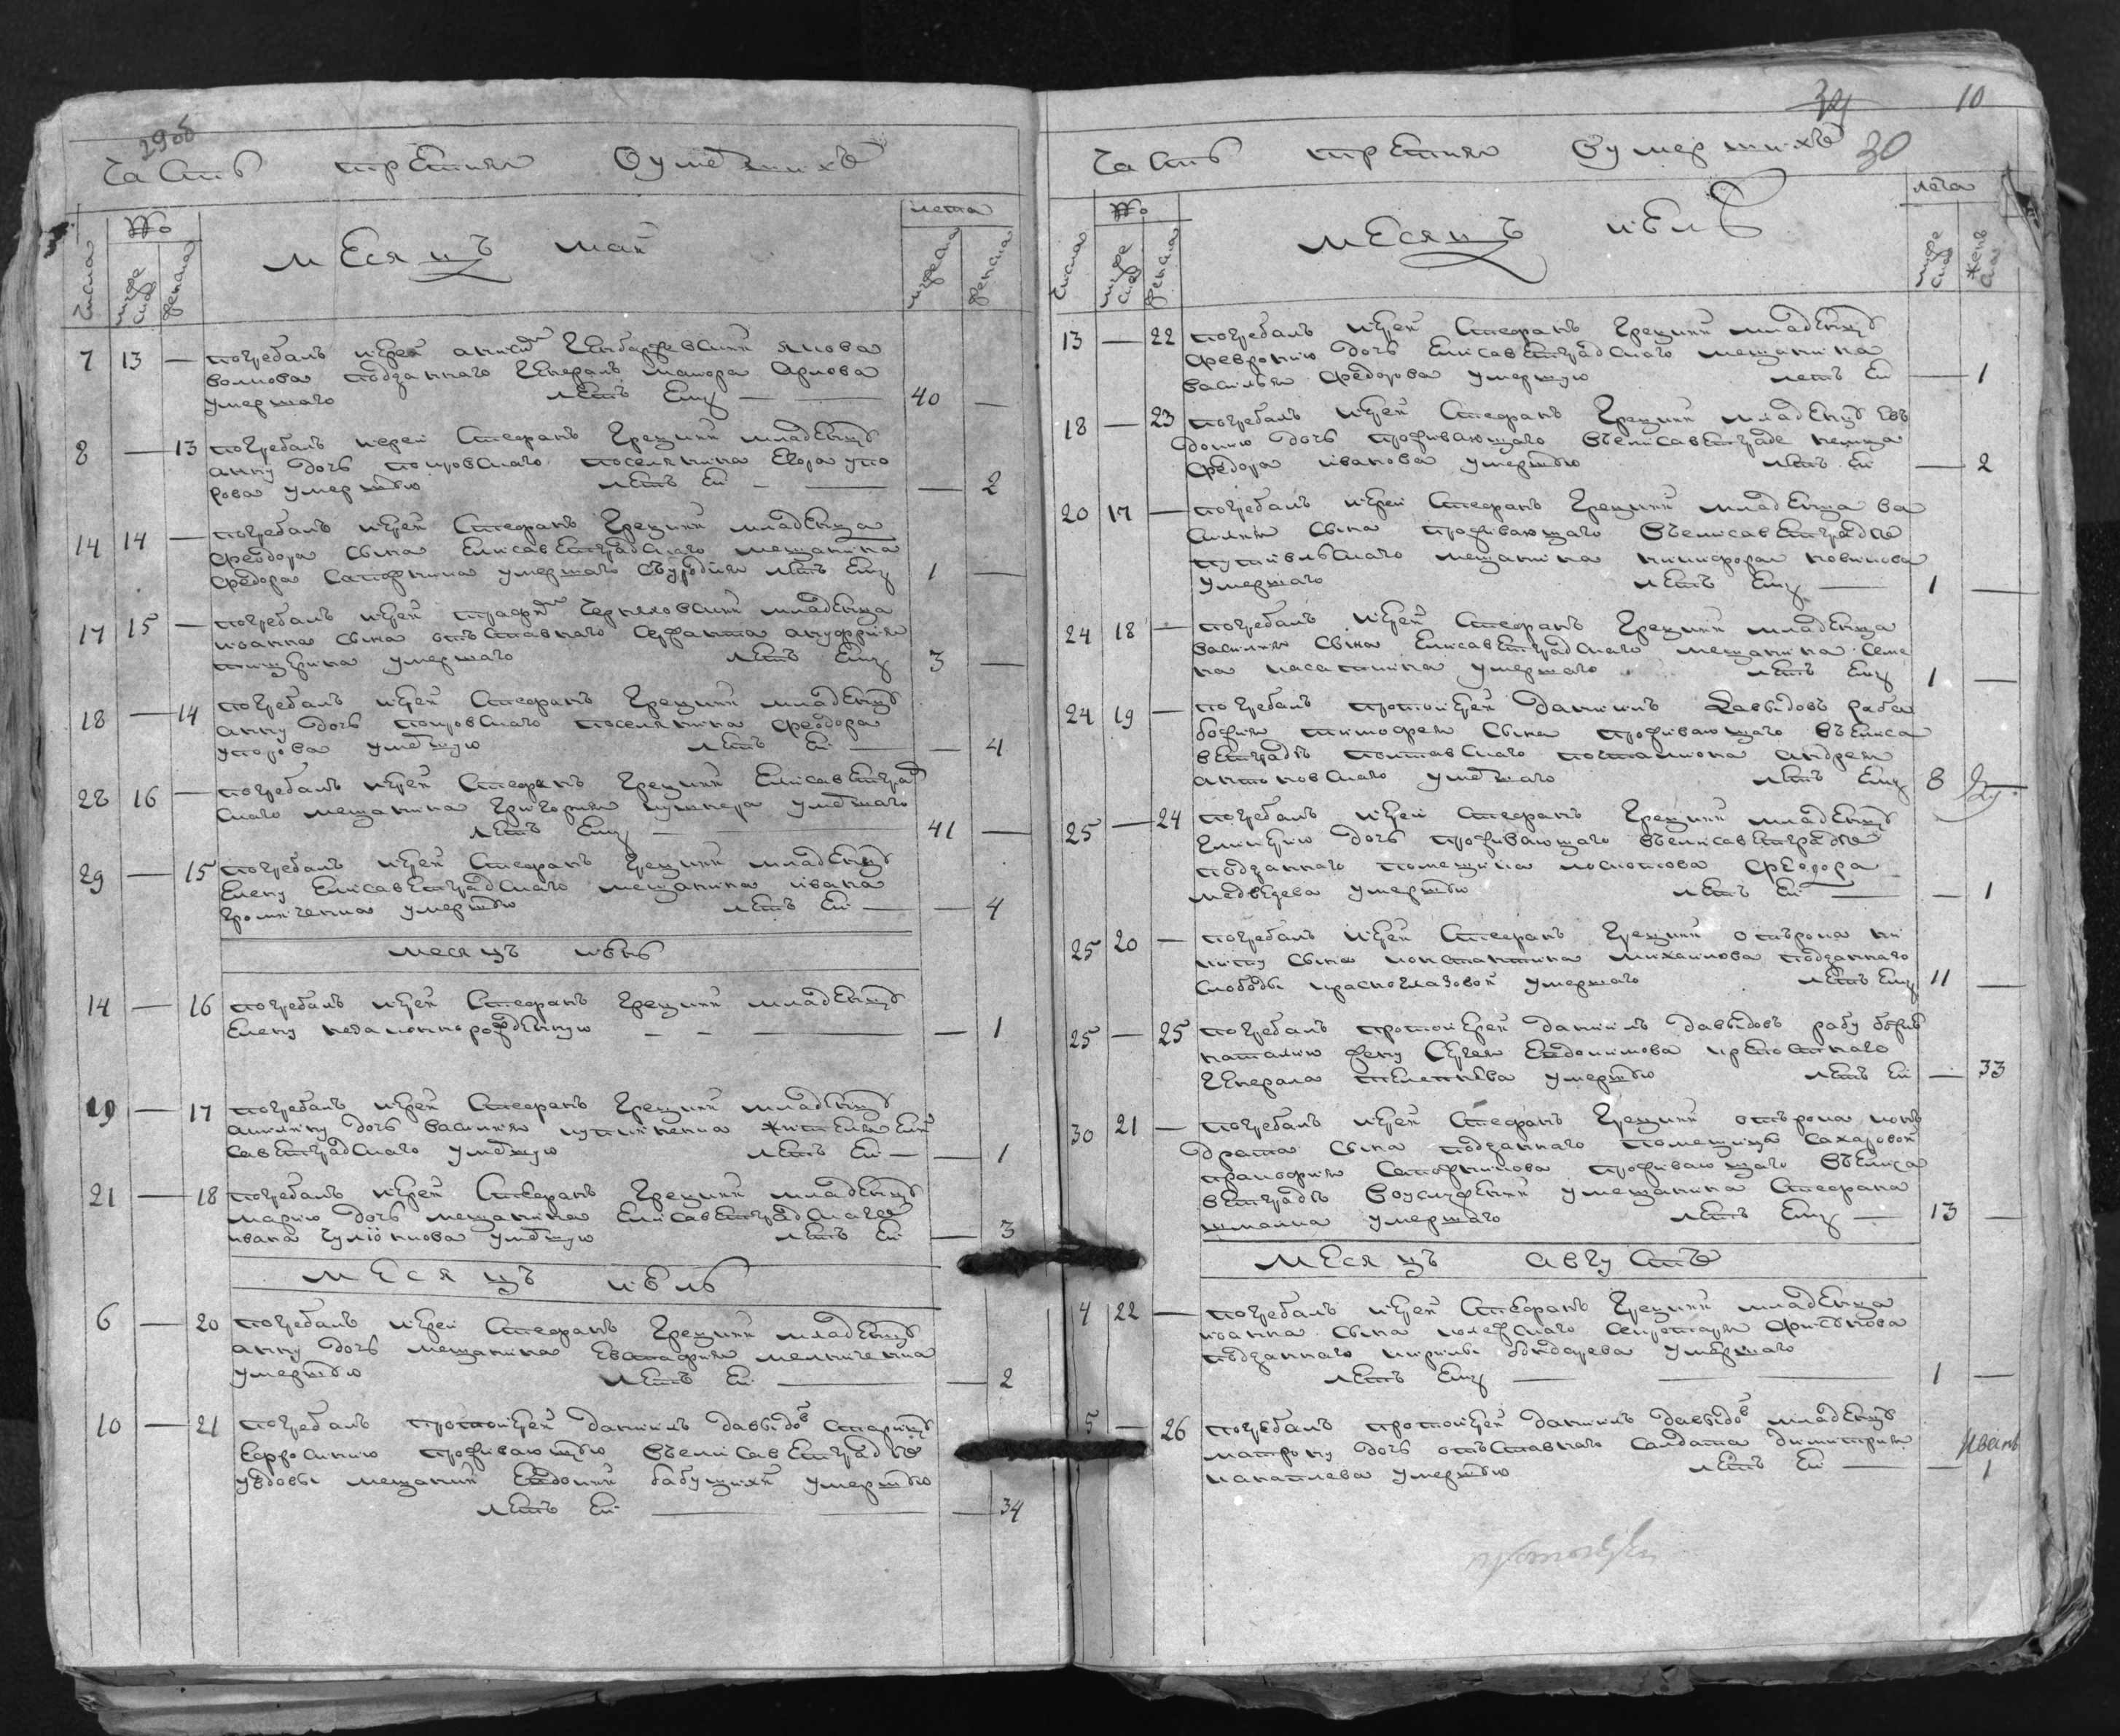 29об
Часть третия Оумершихъ
лета
№
месяцъ маи
числа
мужеска
женска
мужеска
женска
7 13 — погребалъ иерей
волкова подданнаго генералъ маиора Орлова
умершаго летъ Ему — 40 —
8 — 13 погребалъ иерей Стефанъ Грецкий младенца
анну дочь покровскаго поселянина Егора упо
рова умершую летъ Ей — — 2
14 14 — погребалъ иерей Стефанъ Грецкий младенца
Феодора сына Елисаветградскаго мещанина
Федора Сапожника умершаго летъ Ему 1 —
17 15 — погребалъ иерей Черняховский младенца
иоанна сына отъставнаго Сержанта ануфрия
умершаго летъ Ему 3 —
18 — 14 погребалъ иерей Стефанъ Грецкий младенца
анну дочь покровскаго поселянина Феодора
упорова умершую летъ Ей — — 4
22 16 — погребалъ иерей Стефанъ Грецкий Елисаветград
скаго мещанина Григория кушнера умершаго
летъ Ему — 41 —
29 — 15 погребалъ иерей Стефанъ Грецкий младенца
Елену Елисаветградскаго мещанина ивана
Громиченка умершую летъ Ей — — 4
месяцъ июнь
14 — 16 погребалъ иерей Стефанъ Грецкий младенца
Елену незаконнорожденную — — — — 1
19 — 17 погребалъ иерей Стефанъ Грецкий младенца
акилину дочь василия жителя Ели
саветградскаго умершую летъ Ей — — 1
21 — 18 погребалъ иерей Стефанъ Грецкий младенца
марию дочь мещанина Елисаветградскаго
ивана умершую летъ Ей — 3
месяцъ июль
6 — 20 погребалъ иерей Стефанъ Грецкий младенца
анну дочь мещанина Евстафия мелниченка
умершую летъ Ей — — 2
10 — 21 погребалъ протоиерей даниилъ давыдовъ старицу
Ефросинию проживающую въелисаветградѣ
увдовы мещанки Евдокии умершую
летъ Ей — — — 34
34 10
30
Часть третия Оумершихъ
лета
№
месяцъ июль
числа
мужеска
женска
мужеска
женска
13 — 22 погребалъ иерей Стефанъ Грецкий младенца
Февронию дочь Елисаветградскаго мещанина
василия Федорова умершую летъ Ей — 1
18 — 23 погребалъ иерей Стефанъ Грецкий младенца Ев
докию дочь проживающаго въелисаветграде
Федора иванова умершую летъ Ей — 2
20 17 — погребалъ иерей Стефанъ Грецкий младенца ва
силия сына проживающаго въелисаветградѣ
путивльскаго мещанина никифора новикова
умершаго летъ Ему — 1 —
24 18 — погребалъ иерей Стефанъ Грецкий младенца
василия сына Елисаветградскаго мещанина Семе
на касаткина умершаго летъ Ему 1 —
24 19 — погребалъ протоиерей даниилъ Давыдовъ раба
божия тимофея сына проживающаго въелиса
ветградѣ полтавскаго почталиона андрея
антоновскаго умершаго летъ Ему 8
25 — 24 погребалъ иерей Стефанъ Грецкий младенца
Гликерию дочь проживающаго въелисаветградѣ
подданнаго помещика Феодора
медведева умершую летъ Ей — — 1
25 20 — погребалъ иерей Стефанъ Грецкий отърока ни
киту сына константина михаилова подданнаго
слободы красноглазовой умершаго летъ Ему 11 —
25 — 25 погребалъ протоиерей даниилъ давыдовъ рабу божию
наталию жену Сергея Евдокимова крепостнаго
генерала умершую летъ Ей — 33
30 21 — погребалъ иерей Стефанъ Грецкий отърока кон
драта сына подданнаго помещицы сахаровой
прокофия Сапожникова проживающаго въелиса
ветградѣ воуслужении умещанина Стефана
шмалка умершаго летъ Ему — 13 —
месяцъ августъ
4 22 — погребалъ иерей Стефанъ Грецкий младенца
иоанна сына колежскаго секретаря
подданнаго кирилы бондарева умершаго
летъ Ему — — 1 —
5 — 26 погребалъ протоиерей даниилъ давыдовъ младенца
матрону дочь отъставнаго салдата димитрия
умершую летъ Ей — — 1
Иванъ
протоиерей